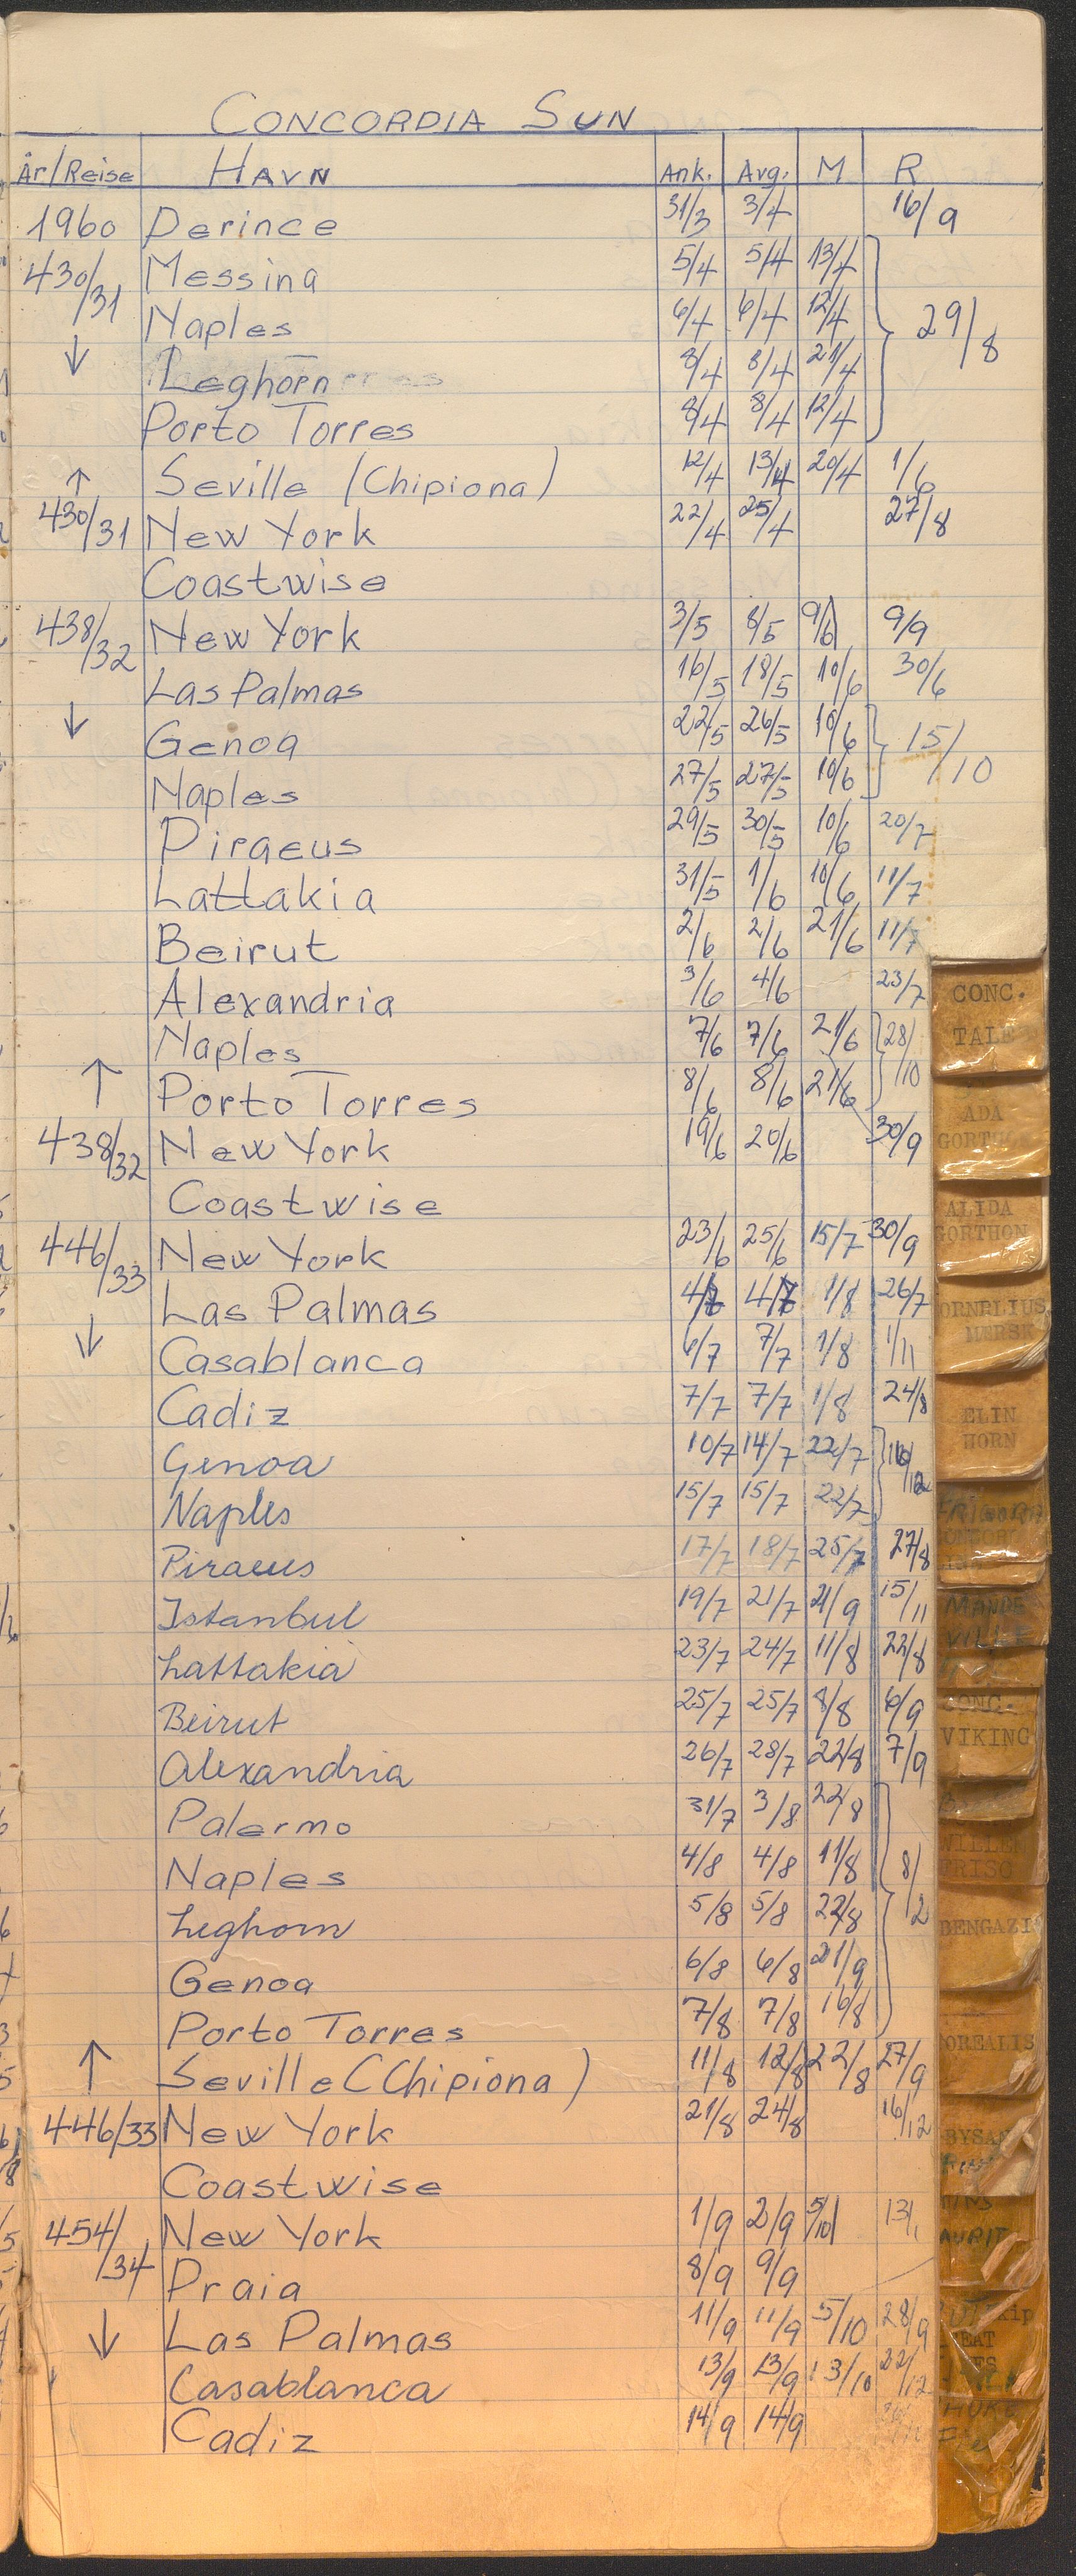 CONCORDIA SUN
År/Reise HAVN Ank. Avg. M R
1960 Derince 31/3 3/4 16/9
430/31 Messina 5/4 5/4 13/4
Naples 6/4 6/4 12/4 29/8
↓ Leghorn 8/4 8/4 21/4
Porto Torres 8/4 8/4 12/4
↑ Seville (Chipiona) 12/4 13/4 20/4 1/6
430/31 New York 22/4 25/4 27/8
Coastwise
438/32 New York 3/5 8/5 9/6 9/9
Las Palmas 16/5 18/5 10/6 30/6
↓ Genoa 22/5 26/5 10/6 15/10
Naples 27/5 27/5 10/6
Piraeus 29/5 30/5 10/6 20/7
Lattakia 31/5 1/6 10/6 11/7
Beirut 2/6 2/6 21/6 11/7
Alexandria 3/6 4/6 23/7
Naples 7/6 7/6 21/6 28/10
↑ Porto Torres 8/6 8/6 21/6
438/32 New York 19/6 20/6 30/9
Coastwise
446/33 New York 23/6 25/6 15/7 30/9
Las Palmas 4/7 4/7 1/8 26/7
↓ Casablanca 6/7 7/7 1/8 1/11
Cadiz 7/7 7/7 1/8 24/8
Genoa 10/7 14/7 22/7 16/12
Naples 15/7 15/7 22/7
Piraeus 17/7 18/7 25/7 27/8
Istanbul 19/7 21/7 21/9 15/11
Lattakia 23/7 24/7 11/8 22/8
Beirut 25/7 25/7 8/8 6/9
Alexandria 26/7 28/7 22/8 7/9
Palermo 31/7 3/8 22/8
Naples 4/8 4/8 11/8 8/12
Leghorn 5/8 5/8 22/8
Genoa 6/8 6/8 21/9
Porto Torres 7/8 7/8 16/8
↑ Seville (Chipiona) 11/8 12/8 22/8 27/9
446/33 New York 21/8 24/8 16/12
Coastwise
454/34 New York 1/9 2/9 5/10 13/1
Praia 8/9 9/9
↓ Las Palmas 11/9 11/9 5/10 28/9
Casablanca 13/9 13/9 13/10 22/12
Cadiz 14/9 14/9
CONC.
TALE
ADA
ALIDA
GORTHON
ORNELIUS
MERSK
ELIN
HORN
MANDE
VILLE
CONC.
VIKING
BENGAZI
OREALIS
BYSA